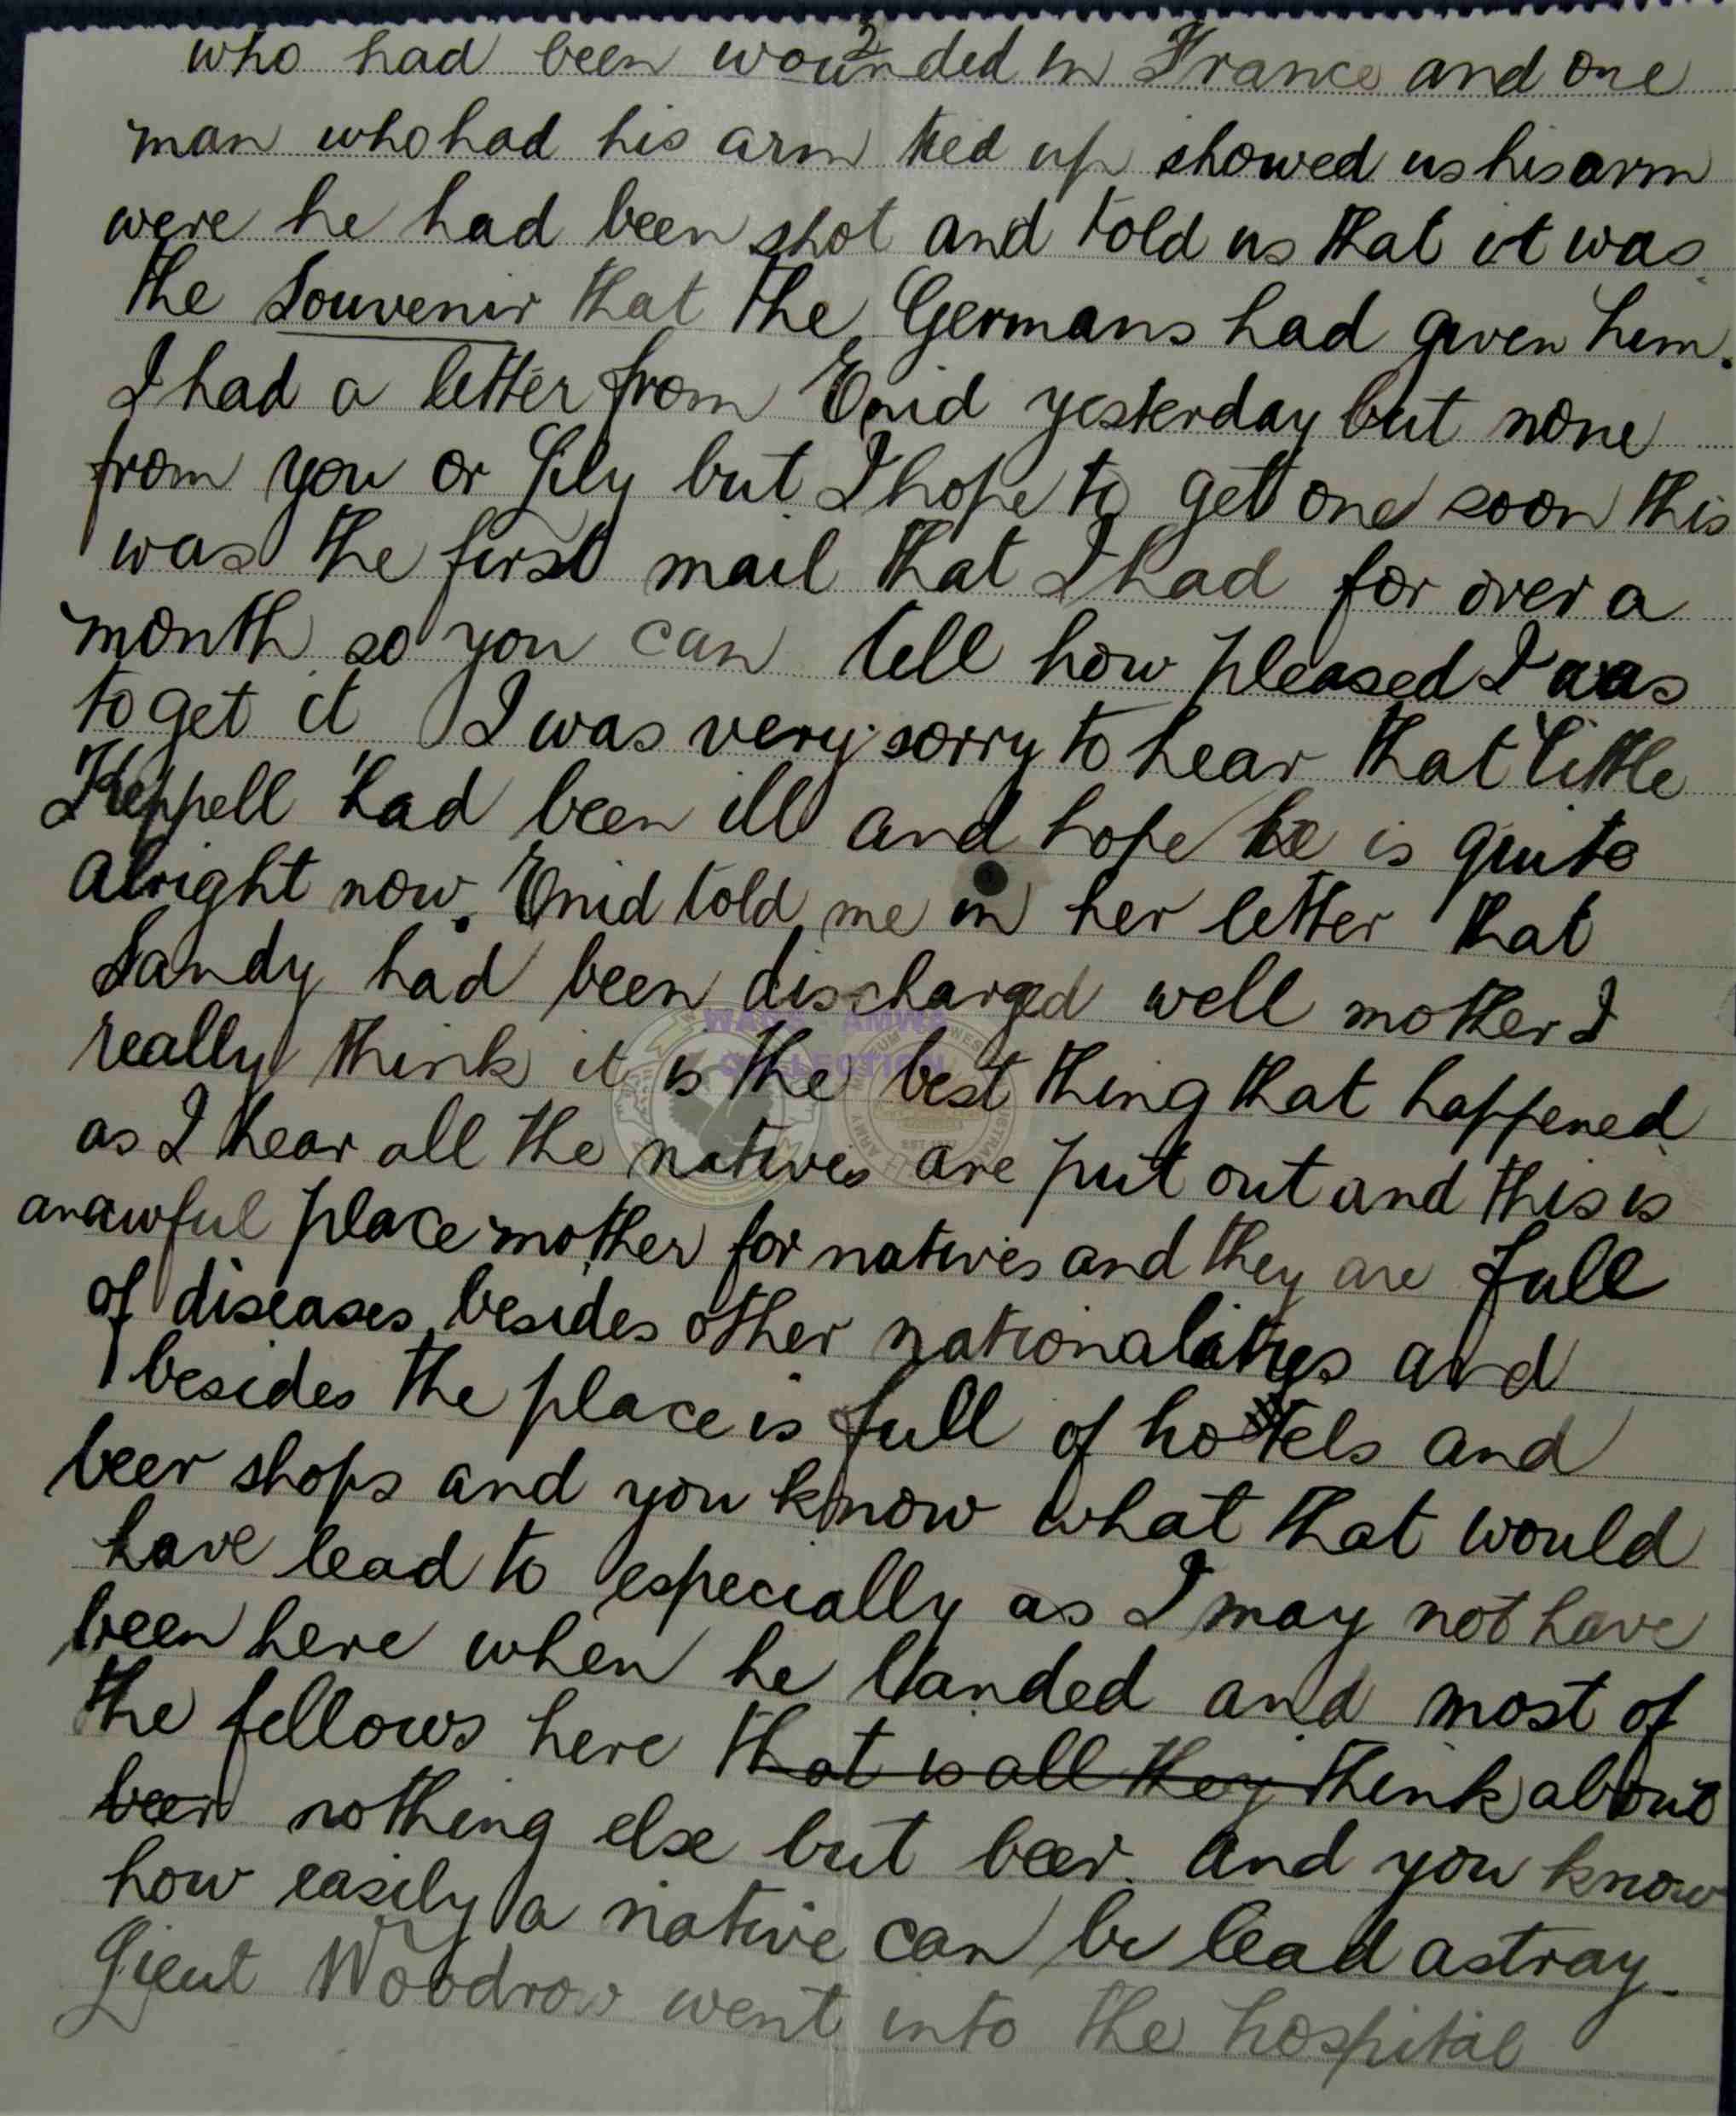 2
who had been wounded in France and one
man who had his arm tied up showed us his arm
were he had been shot and told us that it was
the Souvenir that the Germans had given him.
I had a letter from Enid yesterday but none
from you or Lily but I hope to get one soon this
was the first mail that I had for over a
month so you can tell how pleased I was
to get it I was very sorry to hear that "little
Keppell" had been ill and hope he is quite
alright now. Enid told me in her letter that
Sandy had been discharged well mother I
really think it is the best thing that happened
as I hear all the natives are put out and this is
an awful place mother for natives and they are full
of diseases, besides other nationalities and
besides the place is full of hotels and
beer shops and you know what that would
have lead to especially as I may not have
been here when he landed and most of
the fellows here that is all they think about
beer nothing else but beer. and you know
how easily a native can be lead astray.
Lieut Woodrow went into the hospital
WADS AMWA
COLLECTION